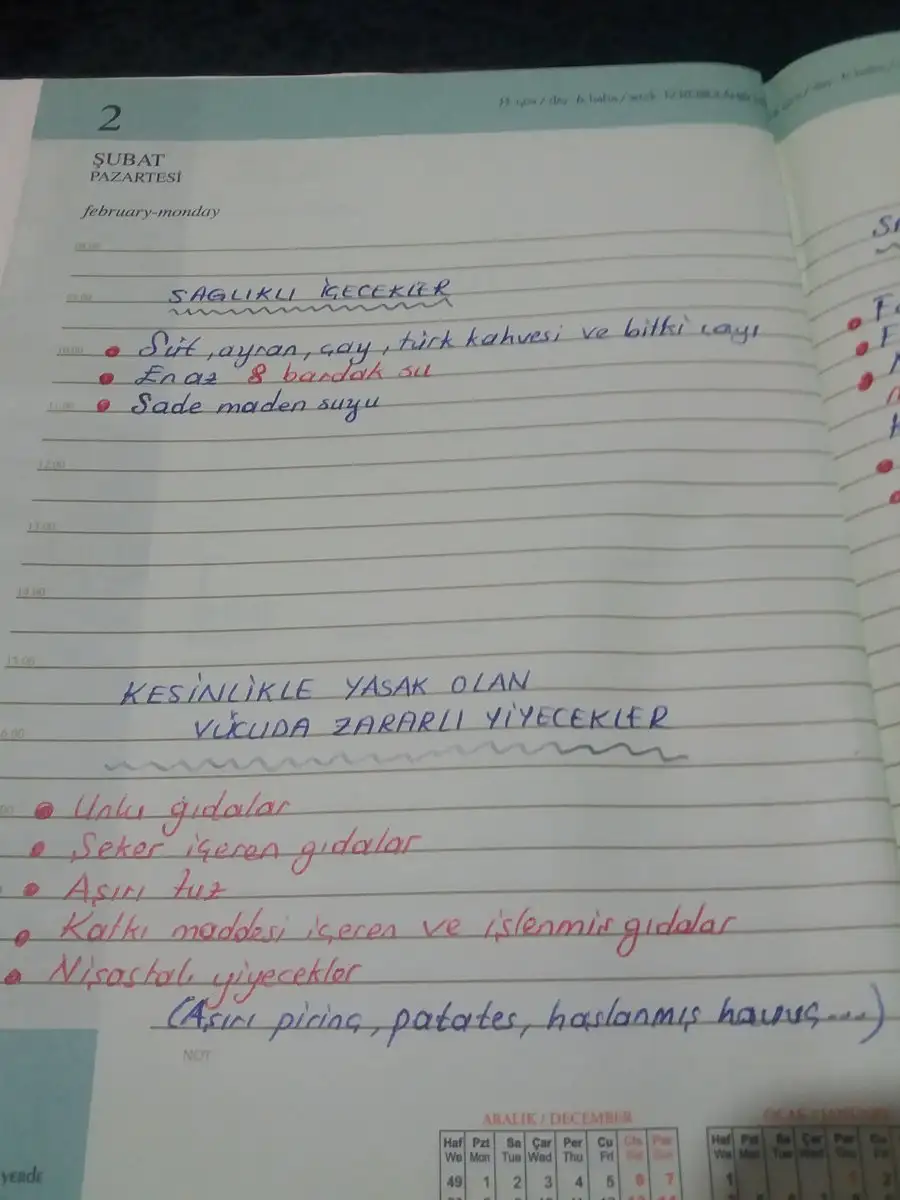 2
ŞUBAT
PAZARTESİ
february-monday
08.00
09.00
SAGLIKLI İÇECEKLER
10.00
Süt, ayran, çay, türk kahvesi ve bitki çayı
En az 8 bardak su
11.00
Sade maden suyu
12.00
13.00
14.00
15.00
KESİNLİKLE YASAK OLAN
VÜCUDA ZARARLI YİYECEKLER
6.00
Unlu gıdalar
Şeker içeren gıdalar
Aşırı tuz
Katkı maddesi içeren ve işlenmiş gıdalar
Nişastalı yiyecekler
(Aşırı pirinç, patates, haşlanmış havuç....)
NOT
ARALIK / DECEMBER
Haf Pzt Sa Çar Per Cu Cts Paz
We Mon Tue Wed Thu Fri
49 1 2 3 4 5 6 7
Haf Pzt Sa Çar Per Cu
We Mon Tue Wed Thu Fri
1 1 2